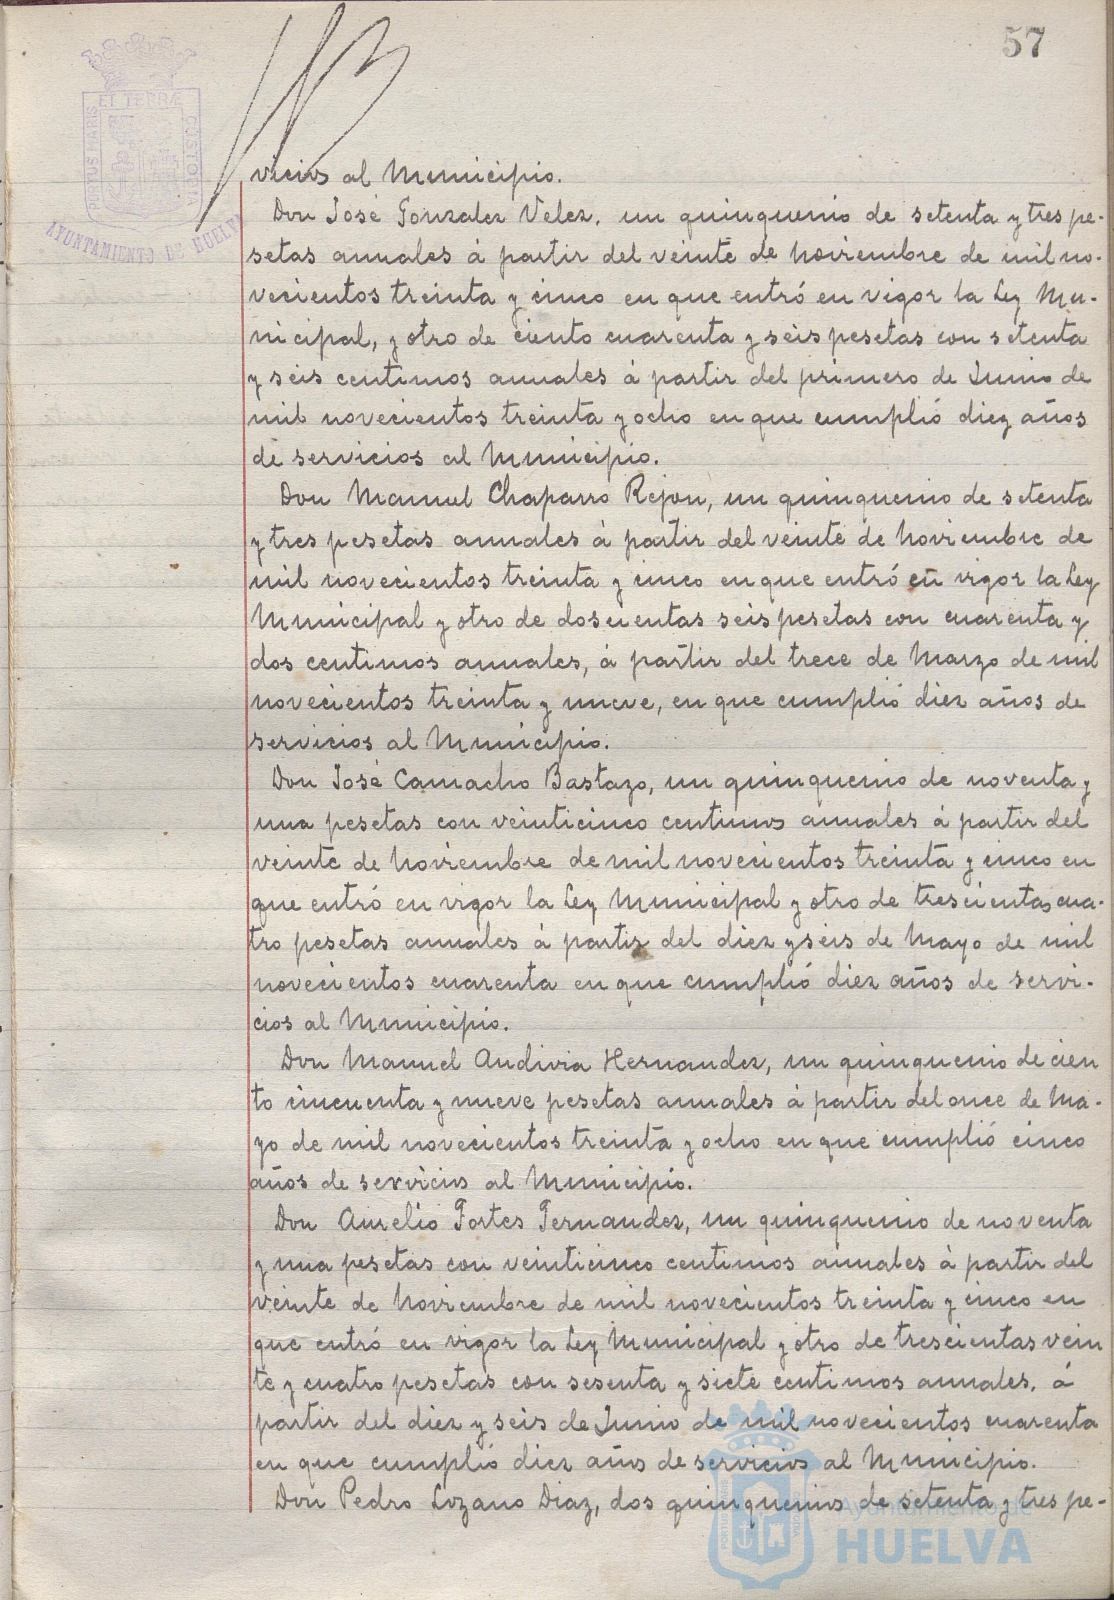 57
PORTUS MARIS ET TERRÆ CUSTODIA
AYUNTAMIENTO DE HUELVA
vicios al Municipio.
Don José Gonzalez Velez, un quinquenio de setenta y tres pe-
setas anuales á partir del veinte de Noviembre de mil no-
vecientos treinta y cinco en que entró en vigor la Ley Mu-
nicipal, y otro de ciento cuarenta y seis pesetas con setenta
y seis centimos anuales á partir del primero de Junio de
mil novecientos treinta y ocho en que cumplió diez años
de servicios al Municipio.
Don Manuel Chaparro Rejon, un quinquenio de setenta
y tres pesetas anuales á partir del veinte de Noviembre de
mil novecientos treinta y cinco en que entró en vigor la Ley
Municipal y otro de doscientas seis pesetas con cuarenta y
dos centimos anuales, á partir del trece de Marzo de mil
novecientos treinta y nueve, en que cumplió diez años de
servicios al Municipio.
Don José Camacho Bastazo, un quinquenio de noventa y
una pesetas con veinticinco centimos anuales á partir del
veinte de Noviembre de mil novecientos treinta y cinco en
que entró en vigor la Ley Municipal y otro de trescientas cua-
tro pesetas anuales á partir del diez y seis de Mayo de mil
novecientos cuarenta en que cumplió diez años de servi-
cios al Municipio.
Don Manuel Andivia Hernandez, un quinquenio de cien
to cincuenta y nueve pesetas anuales á partir del once de Ma-
yo de mil novecientos treinta y ocho en que cumplió cinco
años de servicios al Municipio.
Don Aurelio Fortes Fernandez, un quinquenio de noventa
y una pesetas con veinticinco centimos anuales á partir del
veinte de Noviembre de mil novecientos treinta y cinco en
que entró en vigor la Ley Municipal y otro de trescientas vein
te y cuatro pesetas con sesenta y siete centimos anuales, á
partir del diez y seis de Junio de mil novecientos cuarenta
en que cumplió diez años de servicios al Municipio.
Don Pedro Lozano Diaz, dos quinquenios de setenta y tres pe-
Ayuntamiento de
HUELVA